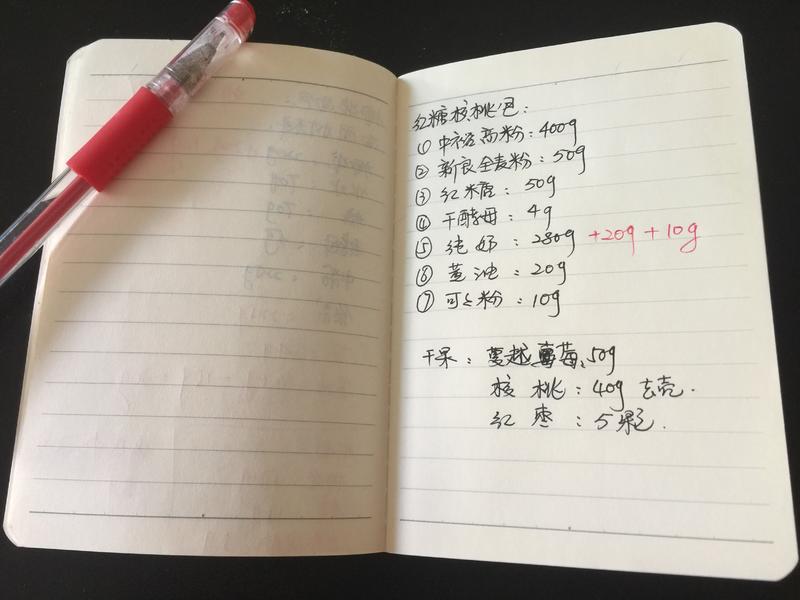 红糖核桃包:
① 中裕高粉:400g
② 新良全麦粉:50g
③ 红糖:50g
④ 干酵母:4g
⑤ 纯奶:280g +20g +10g
⑥ 黄油:20g
⑦ 可可粉:10g
干果:蔓越莓、50g
核桃:40g 去壳.
红枣:5颗.